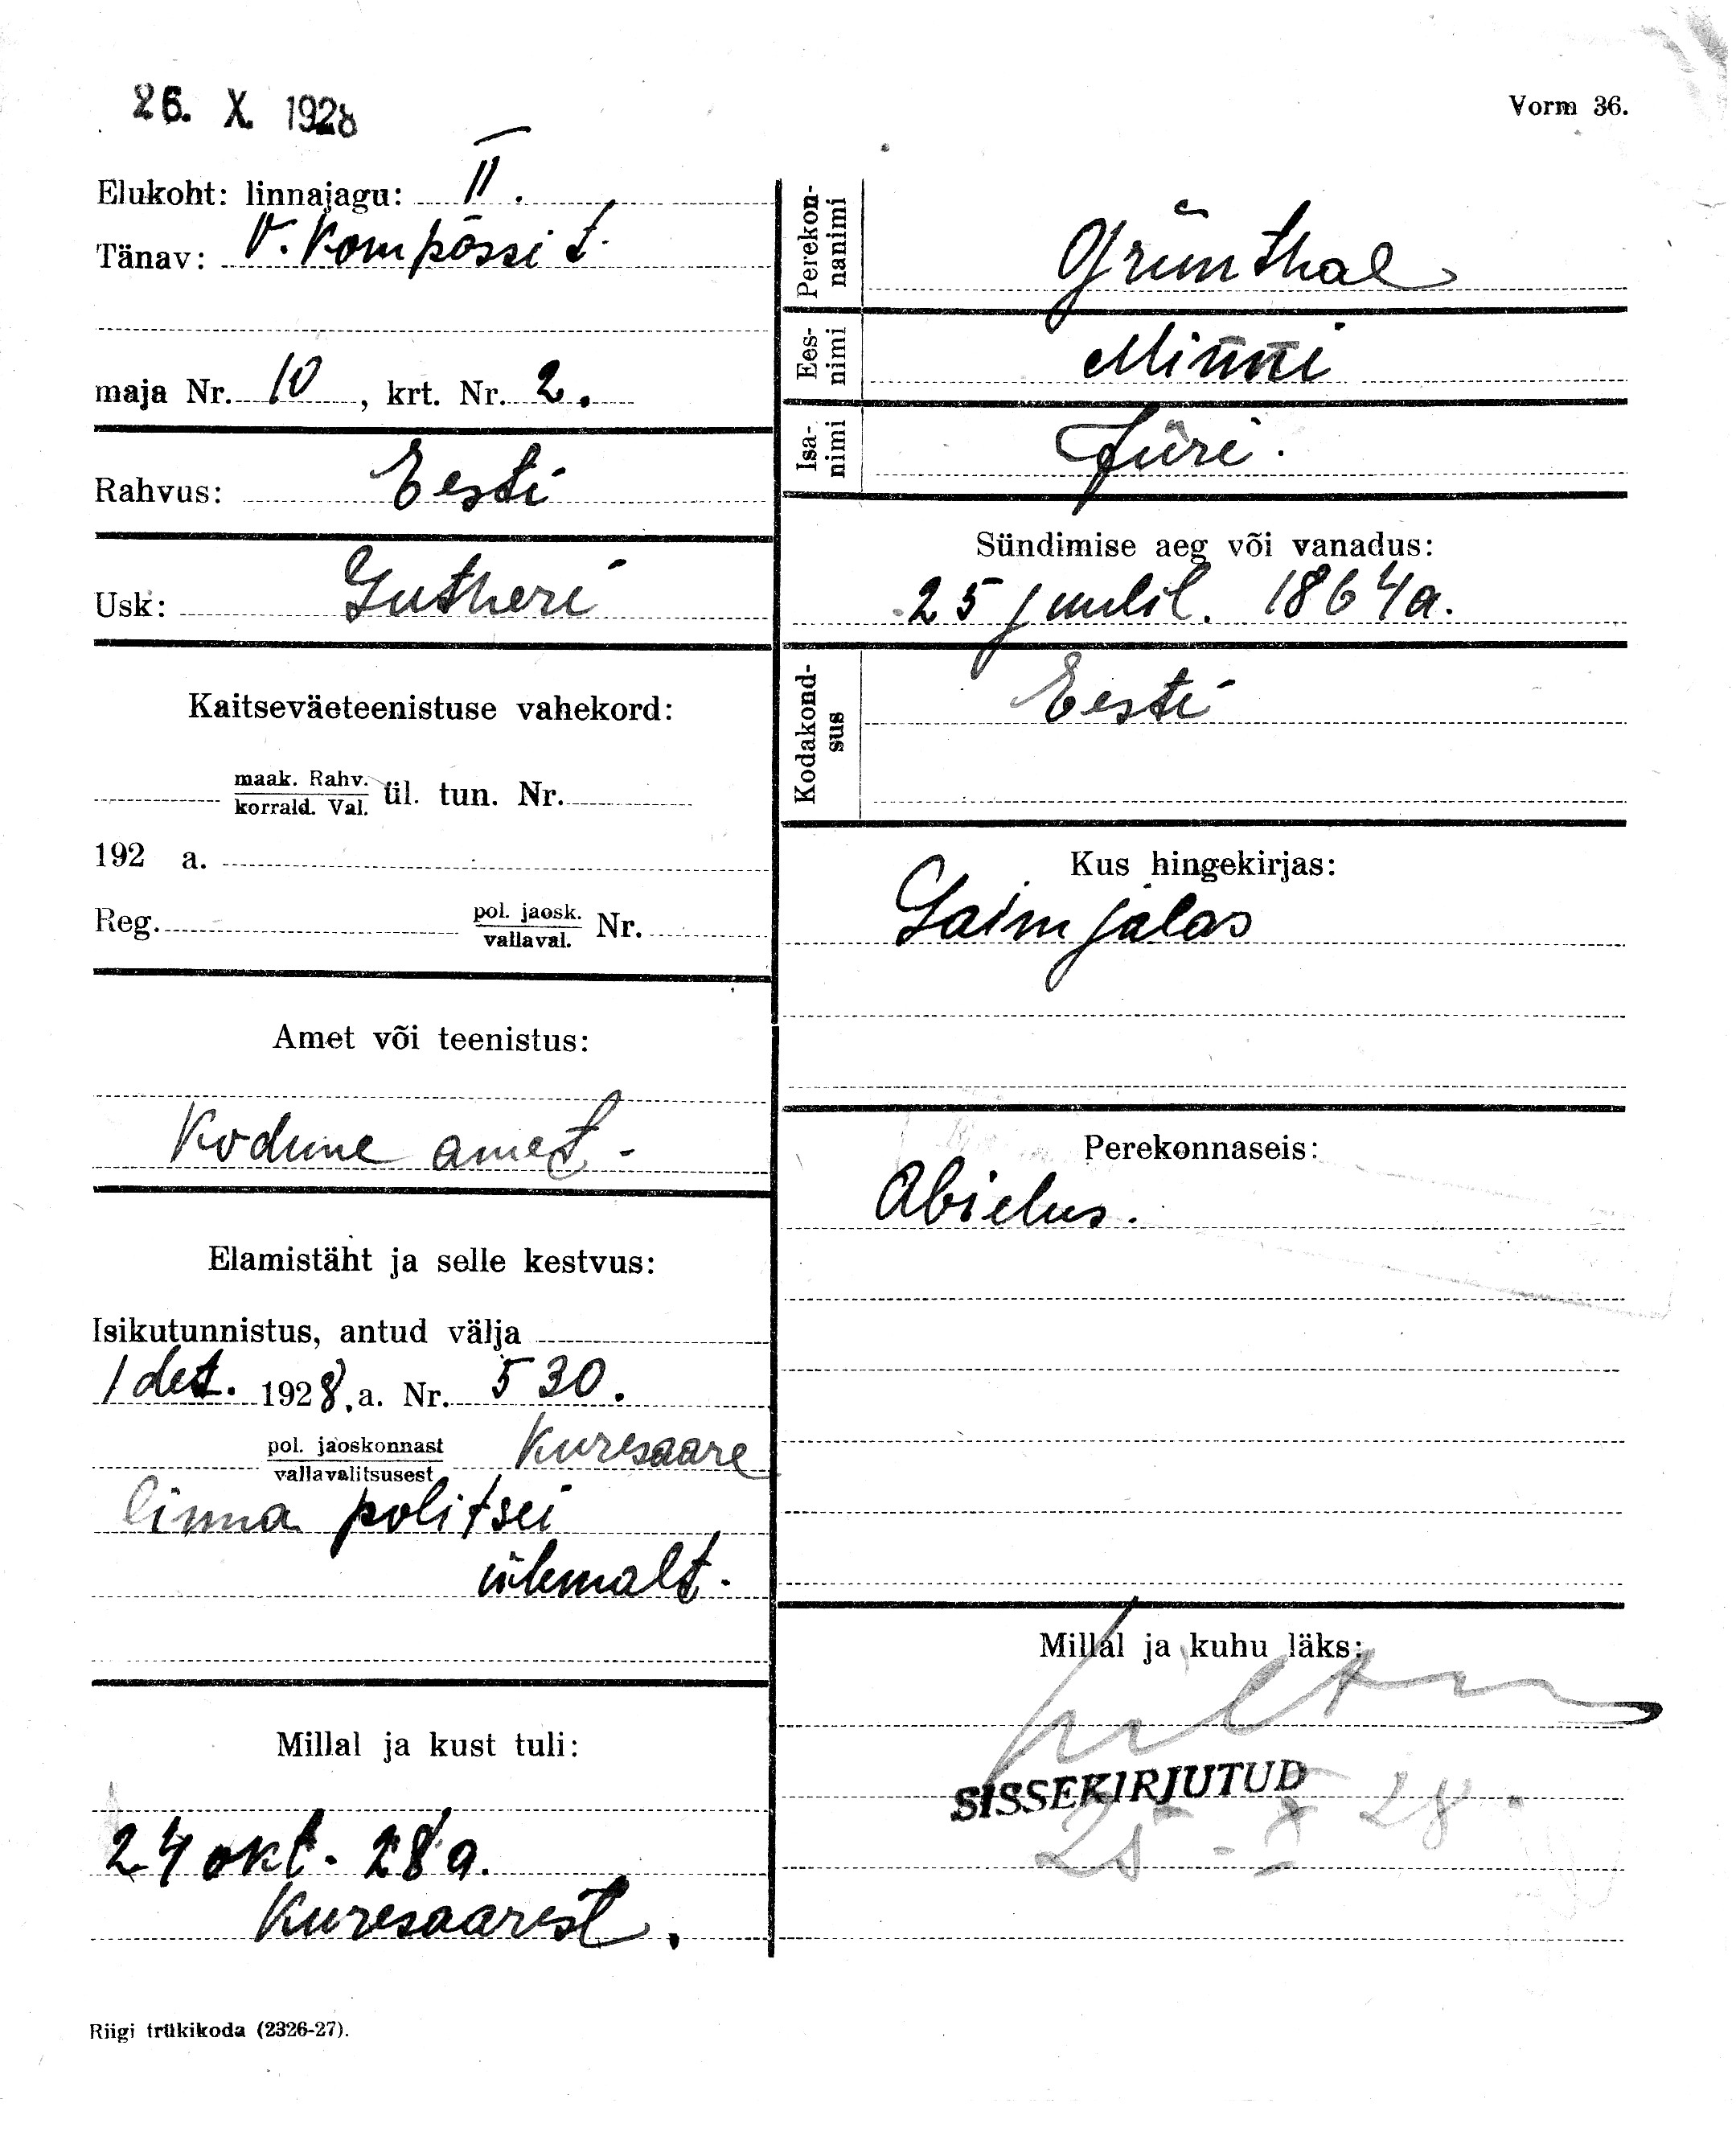 26. X. 1928
Vorm 36.
Elukoht: linnajagu: II.
Tänav: V. Kompässi t.
maja Nr. 10, krt. Nr. 2.
Rahvus: Eesti
Usk: Lutheri
Kaitseväeteenistuse vahekord:
maak. Rahv.
korrald. Val. ül. tun. Nr.
192 a.
Reg. pol. jaosk. Nr.
vallaval.
Amet või teenistus:
Kodune amet -
Elamistäht ja selle kestvus:
Isikutunnistus, antud välja
1 det. 1928. a. Nr. 530.
pol. jaoskonnast Kuresaare
vallavalitsusest
linna politsei
ülemalt.
Millal ja kust tuli:
24 okt. 28 a.
Kuresaarest.
Perekon-
nanimi Grünthal
Ees-
nimi Minni
Isa-
nimi Jüri.
Sündimise aeg või vanadus:
25 juulil. 1864 a.
Kodakond-
sus Eesti
Kus hingekirjas:
Laimjalas
Perekonnaseis:
Abielus.
Millal ja kuhu läks:
SISSEKIRJUTUD
25 - X 28.
Riigi trükikoda (2326-27).